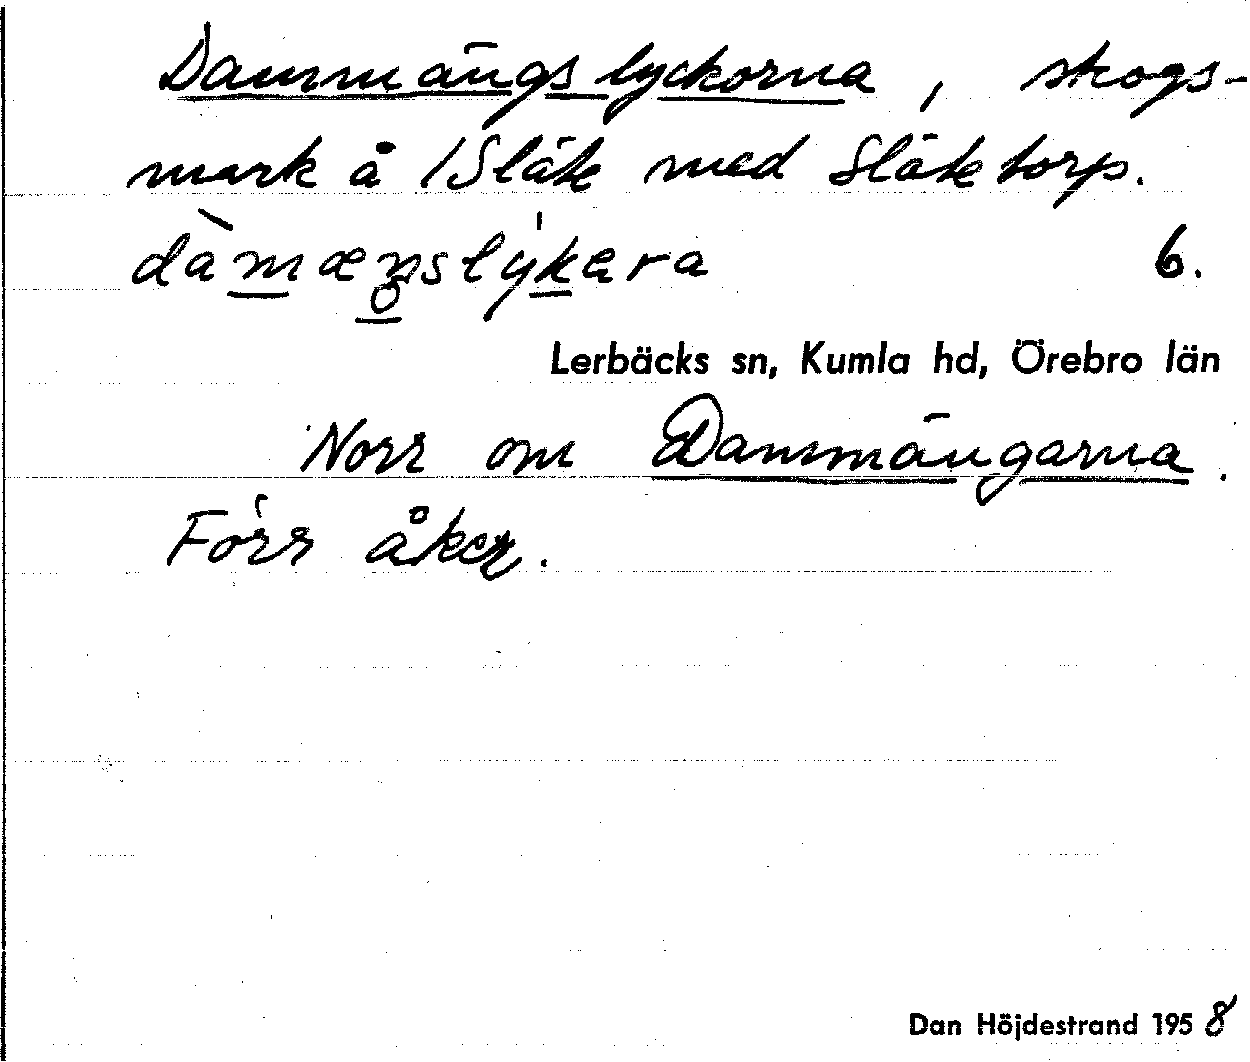 Dammängslyckorna, skogs-
mark å /Släte med Slätetorp.
6.
Lerbäcks sn, Kumla hd, Örebro län
Norr om Dammängarna.
Förr åker.
Dan Höjdestrand 1958